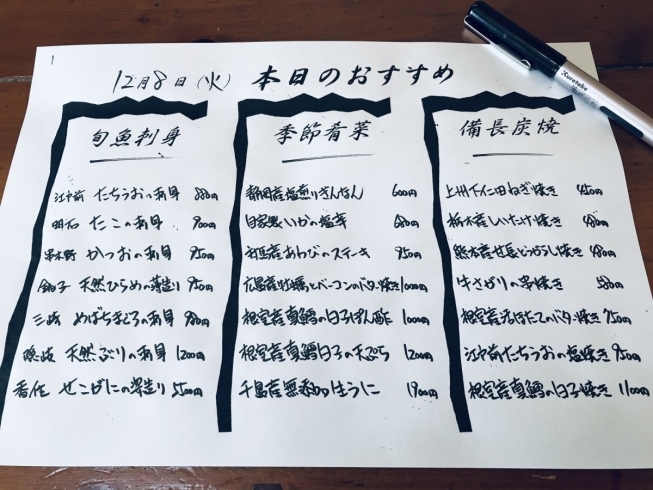 12月8日(火) 本日のおすすめ
旬魚刺身
江戸前 たちうおの刺身 880円
明石 たこの刺身 900円
串木野 かつおの刺身 950円
銚子 天然ひらめの薄造り 950円
三崎 めばちまぐろの刺身 980円
隠岐 天然ぶりの刺身 1200円
香住 せこがにの 造り 円
季節肴菜
静岡産塩煎りぎんなん 600円
自家製いかの塩辛 680円
対馬産あわびのステーキ 950円
広島産牡蠣とベーコンのバター焼き 1000円
根室産真鱈の白子ぽん酢 1000円
根室産真鱈白子の天ぷら 1200円
千島産無添加生うに 1900円
備長炭焼
上州下仁田ねぎ焼き 450円
栃木産しいたけ焼き 480円
熊本産甘長とうがらし焼き 480円
牛さがりの串焼き 580円
根室産ほたてのバター焼き 950円
江戸前たちうおの塩焼き 950円
根室産真鱈の白子焼き 1100円
Kuretake